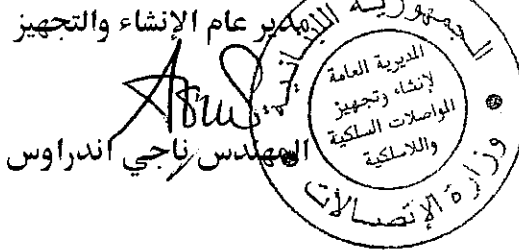 مدير عام الإنشاء والتجهيز
المهندس ناجي اندراوس
الجمهورية اللبنانية
المديرية العامة
لإنشاء وتجهيز
المواصلات السلكية
واللاسلكية
وزارة الإتصالات